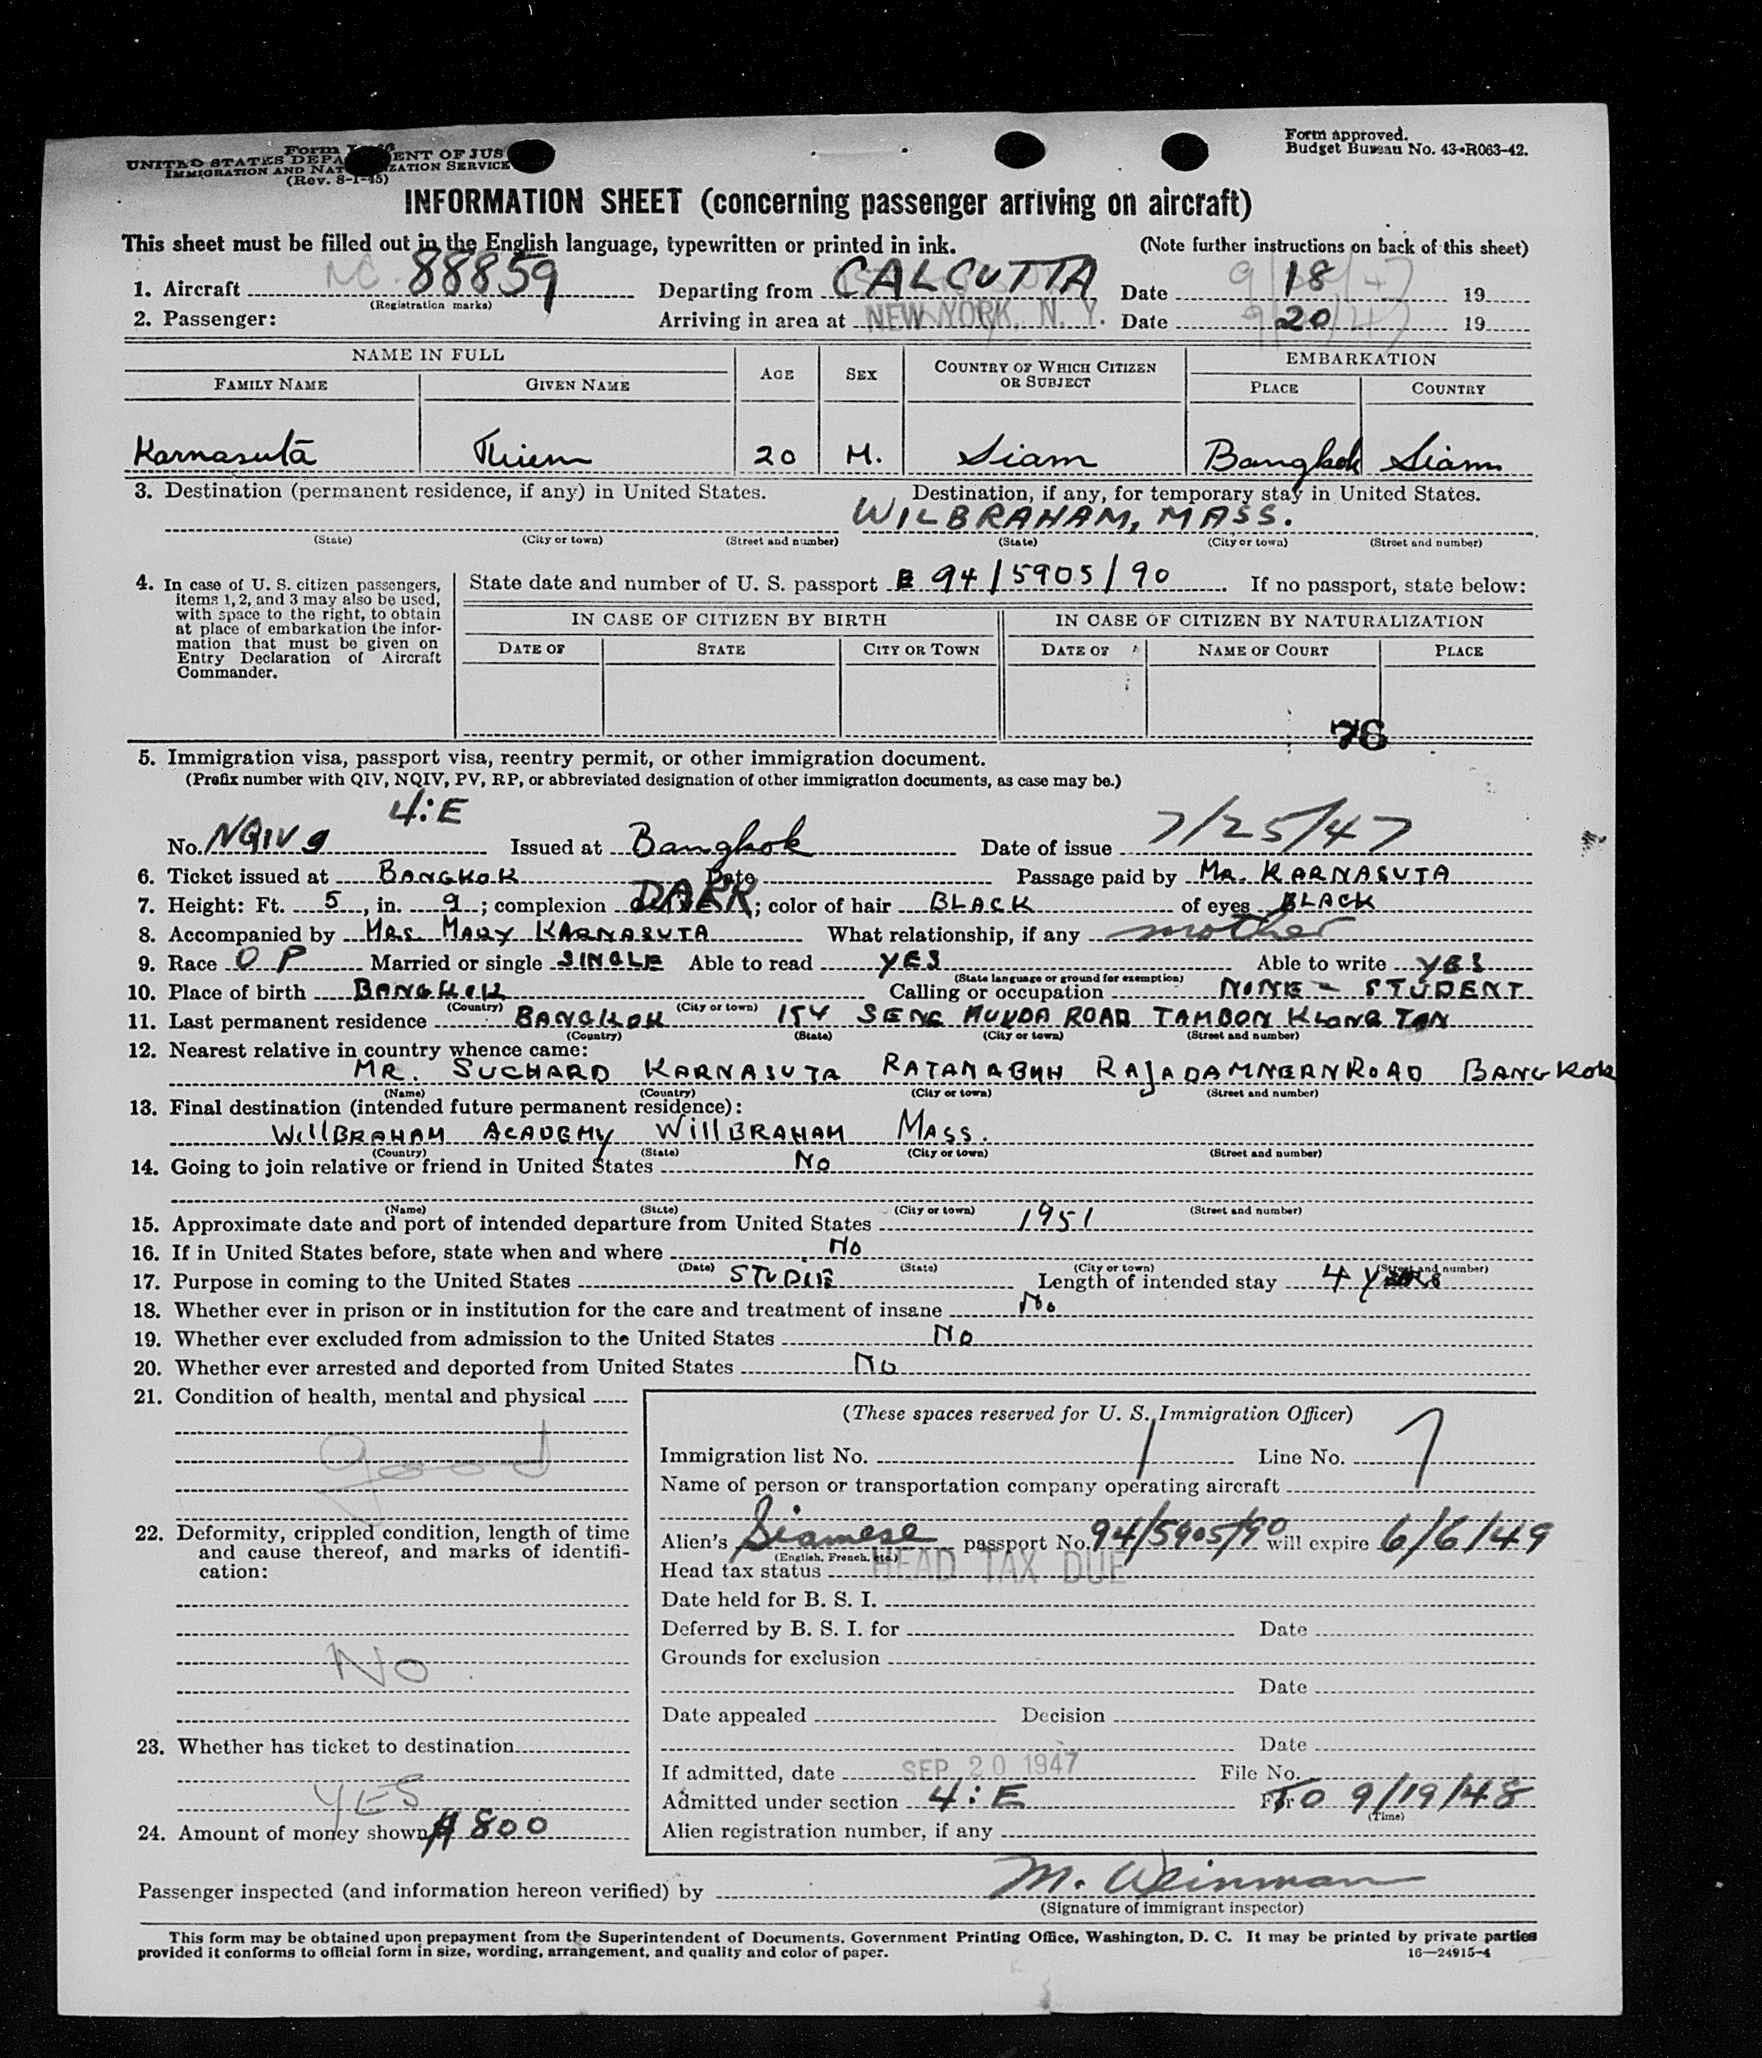 Form I-466
UNITED STATES DEPA ENT OF JUS
IMMIGRATION AND NAT IZATION SERVICE
(Rev. 8-1-45)
Form approved.
Budget Bureau No. 43-R063-42.
INFORMATION SHEET (concerning passenger arriving on aircraft)
This sheet must be filled out in the English language, typewritten or printed in ink. (Note further instructions on back of this sheet)
1. Aircraft NC. 88859 Departing from CALCUTTA Date 9/18/47 19
(Registration marks)
2. Passenger: Arriving in area at NEW YORK, N. Y. Date 9/20/47 19
NAME IN FULL AGE SEX COUNTRY OF WHICH CITIZEN OR SUBJECT EMBARKATION
FAMILY NAME GIVEN NAME PLACE COUNTRY
Karnasuta Thiem 20 M. Siam Bangkok Siam
3. Destination (permanent residence, if any) in United States. Destination, if any, for temporary stay in United States.
WILBRAHAM, MASS.
(State) (City or town) (Street and number) (State) (City or town) (Street and number)
4. In case of U. S. citizen passengers, items 1, 2, and 3 may also be used, with space to the right, to obtain at place of embarkation the information that must be given on Entry Declaration of Aircraft Commander.
State date and number of U. S. passport 94/5905/90 If no passport, state below:
IN CASE OF CITIZEN BY BIRTH IN CASE OF CITIZEN BY NATURALIZATION
DATE OF STATE CITY OR TOWN DATE OF NAME OF COURT PLACE
76
5. Immigration visa, passport visa, reentry permit, or other immigration document.
(Prefix number with QIV, NQIV, PV, RP, or abbreviated designation of other immigration documents, as case may be.)
4:E
No. NQIV 9 Issued at Bangkok Date of issue 7/25/47
6. Ticket issued at BANGKOK Date Passage paid by MR. KARNASUTA
7. Height: Ft. 5, in. 9; complexion DARK; color of hair BLACK of eyes BLACK
8. Accompanied by MRS. MARY KARNASUTA What relationship, if any mother
9. Race O P Married or single SINGLE Able to read YES Able to write YES
(State language or ground for exemption)
10. Place of birth BANGKOK Calling or occupation NONE - STUDENT
(Country) (City or town)
11. Last permanent residence BANGKOK 154 SENG MUKDA ROAD TAMBON KLONG TAN
(Country) (State) (City or town) (Street and number)
12. Nearest relative in country whence came:
MR. SUCHARD KARNASUTA RATANABHH RAJADAMNERN ROAD BANGKOK
(Name) (Country) (City or town) (Street and number)
13. Final destination (intended future permanent residence):
WillBRAHAM ACADEMY WillBRAHAM MASS.
(Country) (State) (City or town) (Street and number)
14. Going to join relative or friend in United States No
(Name) (State) (City or town) (Street and number)
15. Approximate date and port of intended departure from United States 1951
16. If in United States before, state when and where No
(Date) (State) (City or town) (Street and number)
17. Purpose in coming to the United States STUDIE Length of intended stay 4 YEARS
18. Whether ever in prison or in institution for the care and treatment of insane No
19. Whether ever excluded from admission to the United States No
20. Whether ever arrested and deported from United States No
21. Condition of health, mental and physical
good
22. Deformity, crippled condition, length of time and cause thereof, and marks of identification:
No
23. Whether has ticket to destination
YES
24. Amount of money shown $ 800
(These spaces reserved for U. S. Immigration Officer)
Immigration list No. 1 Line No. 7
Name of person or transportation company operating aircraft
Alien's Siamese passport No. 94/5905/90 will expire 6/6/49
(English, French, etc.)
Head tax status HEAD TAX DUE
Date held for B. S. I.
Deferred by B. S. I. for Date
Grounds for exclusion
Date
Date appealed Decision
Date
If admitted, date SEP 20 1947 File No.
Admitted under section 4:E For TO 9/19/48
(Time)
Alien registration number, if any
Passenger inspected (and information hereon verified) by M. Weinman
(Signature of immigrant inspector)
This form may be obtained upon prepayment from the Superintendent of Documents, Government Printing Office, Washington, D. C. It may be printed by private parties
provided it conforms to official form in size, wording, arrangement, and quality and color of paper. 16—24915-4